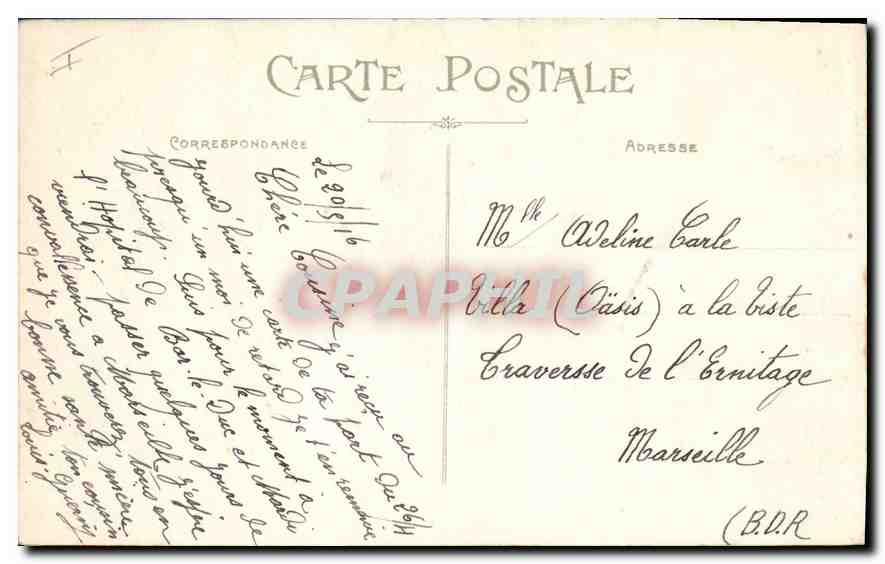 CARTE POSTALE
CORRESPONDANCE
ADRESSE
Le 20/5/16
Chére Cousine j'ai reçu au
jourd'hui une carte de ta part du 26/4
presqu'un mois de retard je t'en remercie
beaucoup. Suis pour le moment à
l'Hopital de Bar-le-Duc et Mardi
viendrai passer quelques jours de
convallessence a Marseille j'espère
que je vous trouverez tous en
bonne santé
amitiés ton cousin
Louis
CPAPHIL
Mlle Adeline Carle
Villa (Oäsis) à la Viste
Traversse de l'Ermitage
Marseille
(B.D.R